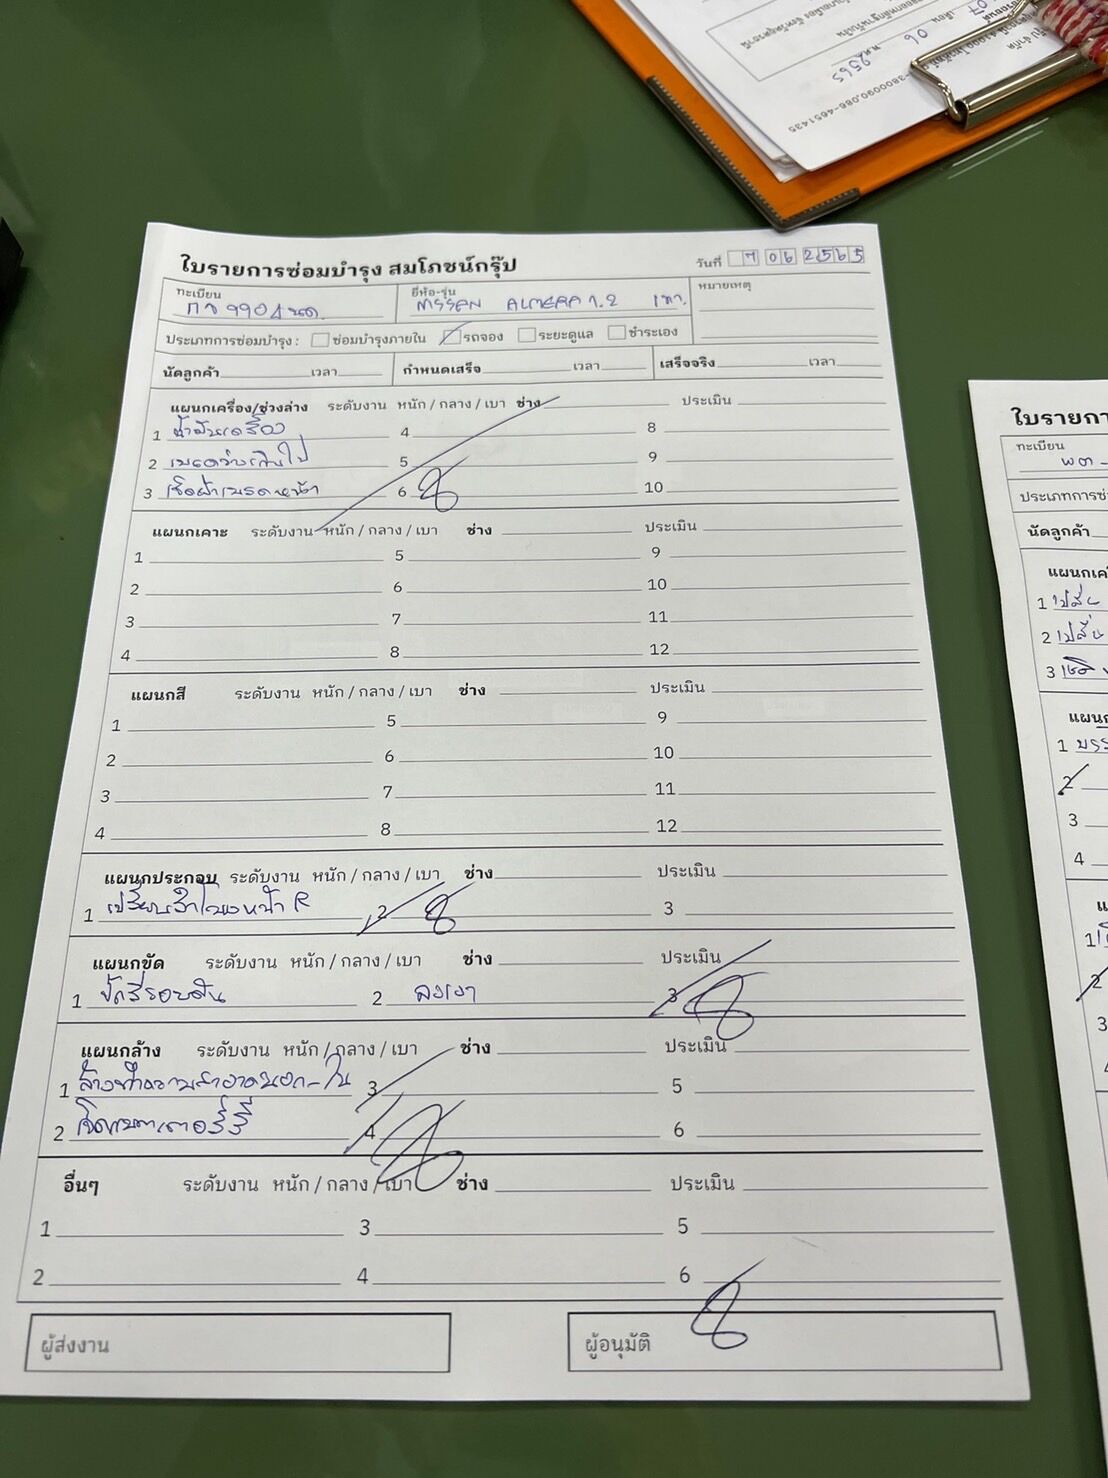 ใบรายการซ่อมบำรุง สมโภชน์กรุ๊ป
วันที่ 7 06 2565
ทะเบียน
9904
ยี่ห้อ-รุ่น
NISSAN ALMERA 1.2 เทา
หมายเหตุ
ประเภทการซ่อมบำรุง : ซ่อมบำรุงภายใน รถจอง ระยะดูแล ชำระเอง
นัดลูกค้า เวลา กำหนดเสร็จ เวลา เสร็จจริง เวลา
แผนกเครื่อง/ช่วงล่าง ระดับงาน หนัก / กลาง / เบา ช่าง ประเมิน
1 น้ำมันเครื่อง 4 8
2 5 9
3 เช็คผ้าเบรคหน้า 6 10
แผนกเคาะ ระดับงาน หนัก / กลาง / เบา ช่าง ประเมิน
1 5 9
2 6 10
3 7 11
4 8 12
แผนกสี ระดับงาน หนัก / กลาง / เบา ช่าง ประเมิน
1 5 9
2 6 10
3 7 11
4 8 12
แผนกประกอบ ระดับงาน หนัก / กลาง / เบา ช่าง ประเมิน
1 หน้า R 2 3
แผนกขัด ระดับงาน หนัก / กลาง / เบา ช่าง ประเมิน
1 ขัดสีรอบคัน 2 ลงเงา 3
แผนกล้าง ระดับงาน หนัก / กลาง / เบา ช่าง ประเมิน
1 ล้างทำความสะอาดนอก-ใน 3 5
2 เช็คแบตเตอร์รี่ 4 6
อื่นๆ ระดับงาน หนัก / กลาง / เบา ช่าง ประเมิน
1 3 5
2 4 6
ผู้ส่งงาน
ผู้อนุมัติ
ใบรายกา
ทะเบียน
ประเภทการซ่
นัดลูกค้า
1 เปลี่ย
2 เปลี่ย
3
1
2
3
4
1
2
3
07 เดือน 06 พ.ศ. 2565
-3800090,086-4651435